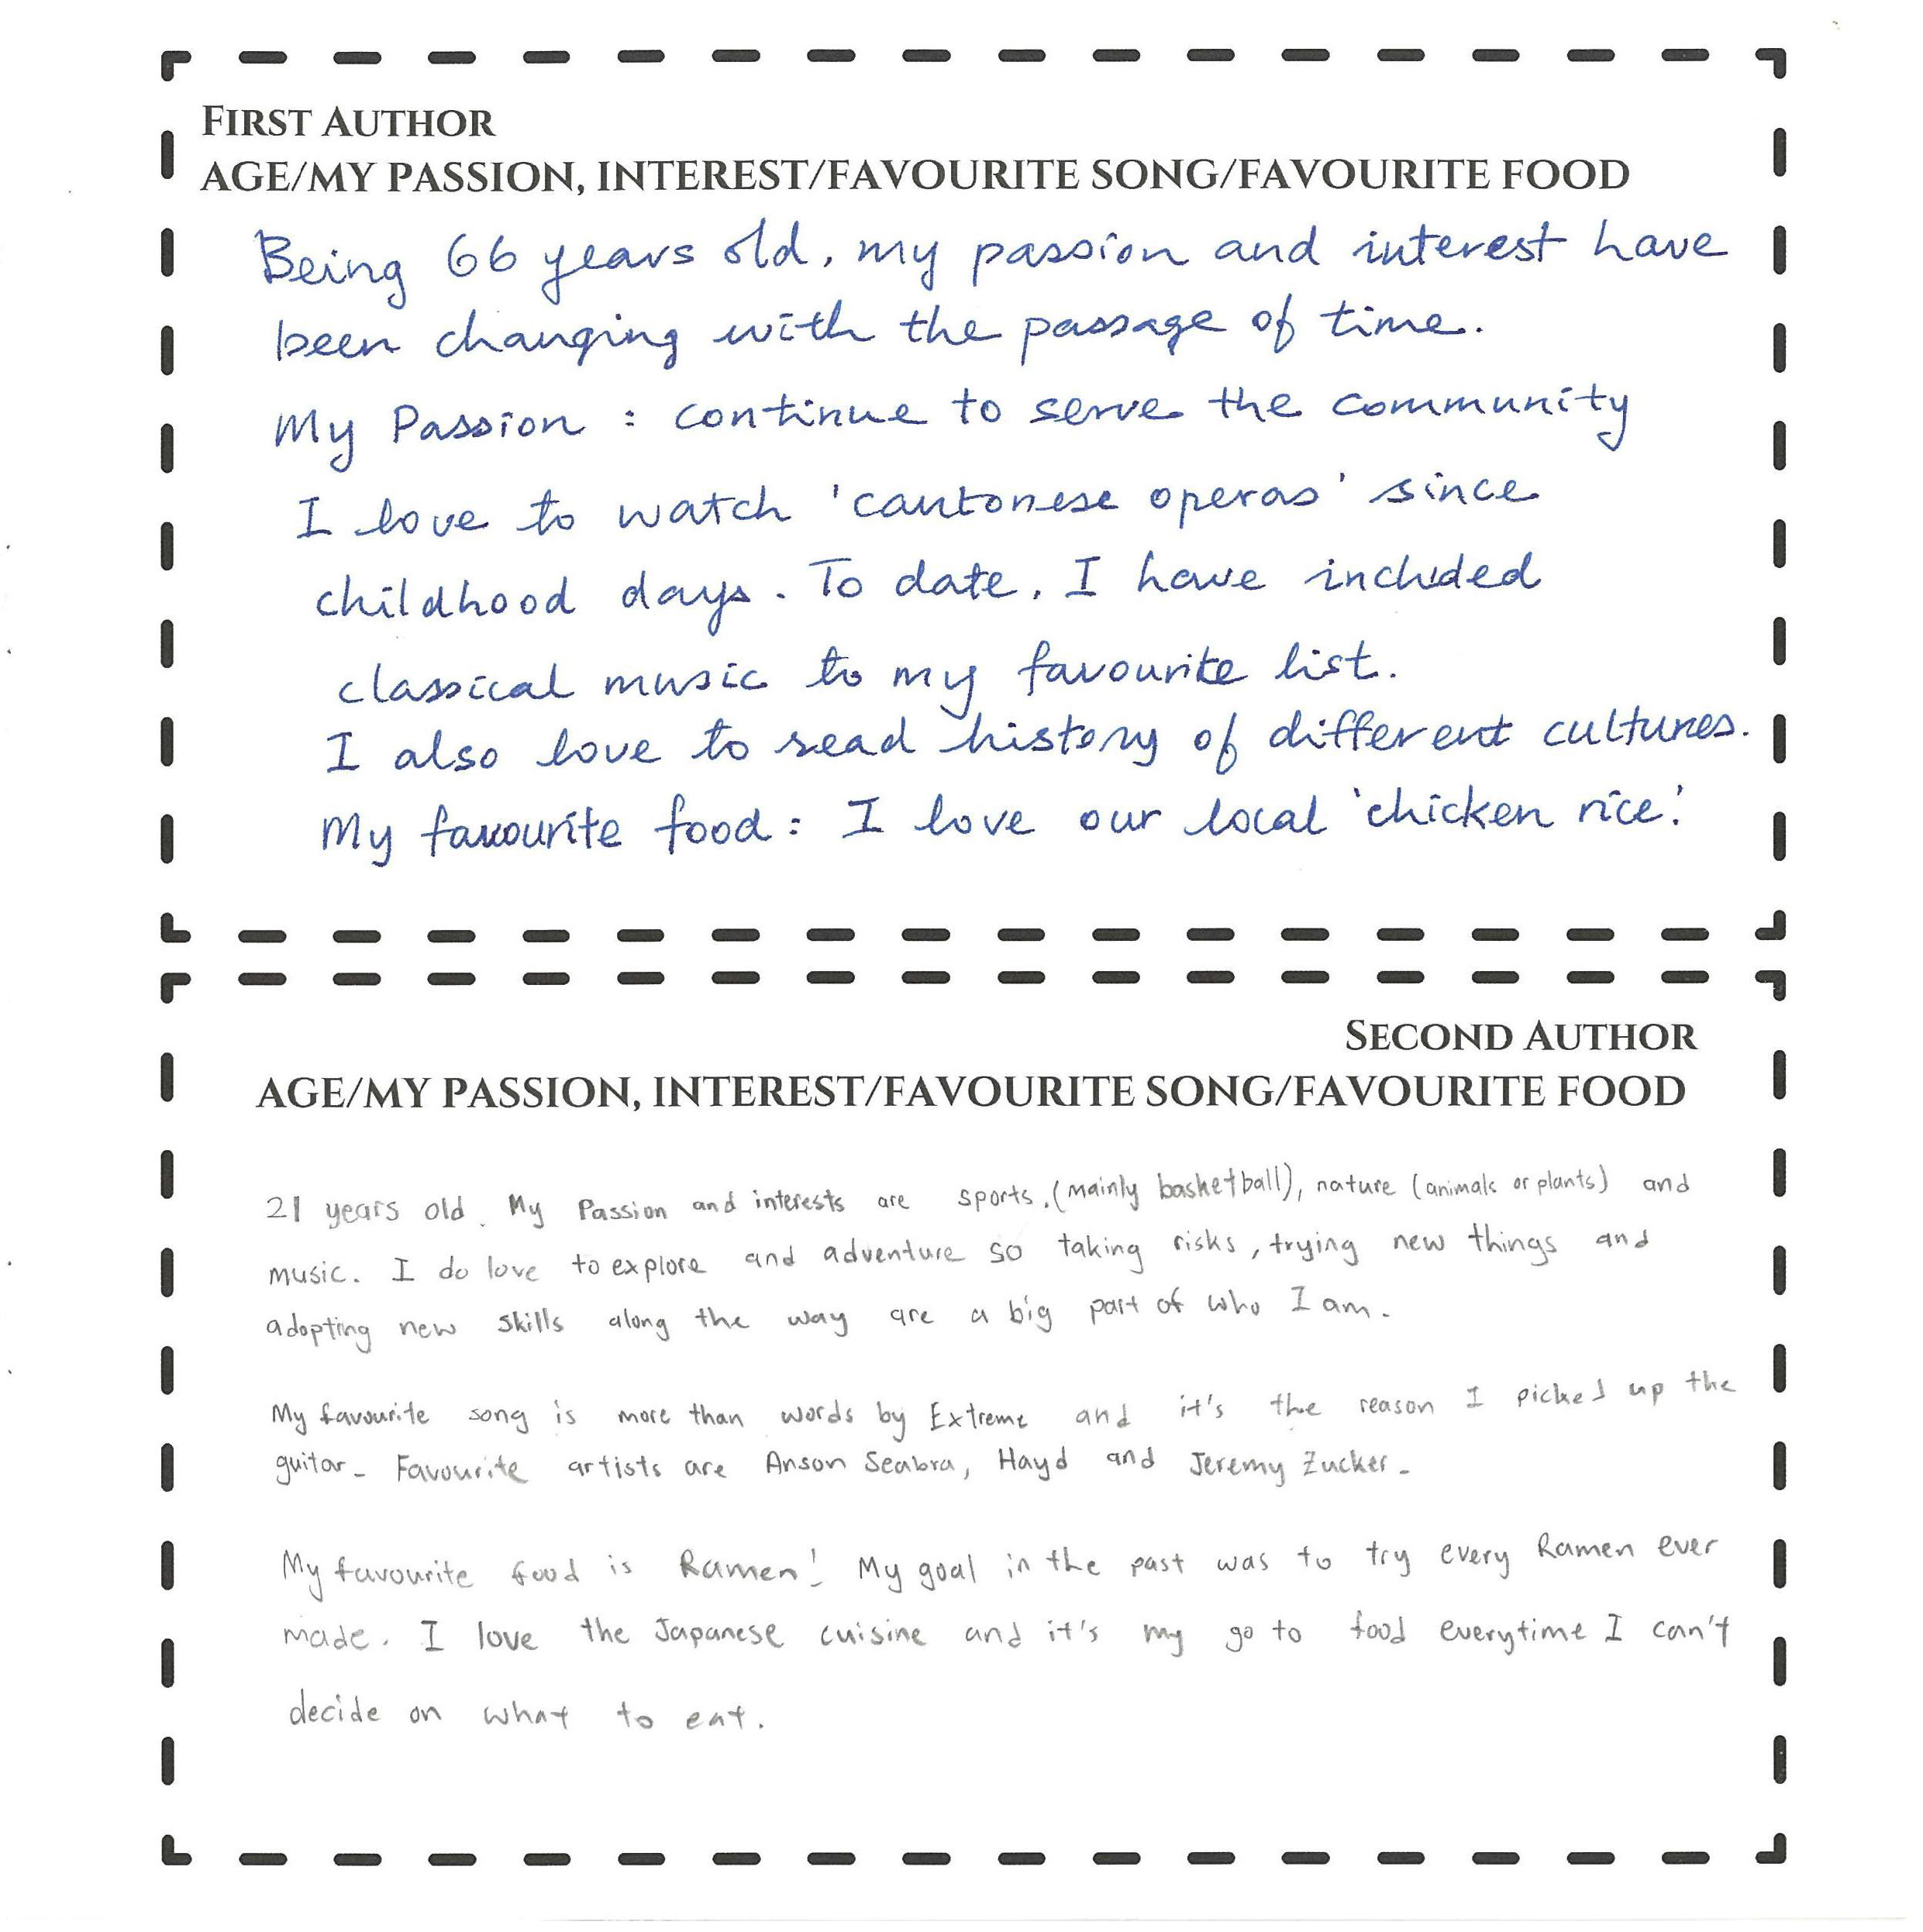 FIRST AUTHOR
AGE/MY PASSION, INTEREST/FAVOURITE SONG/FAVOURITE FOOD
Being 66 years old, my passion and interest have
been changing with the passage of time.
My Passion : continue to serve the community
I love to watch 'cantonese operas' since
childhood days. To date, I have included
classical music to my favourite list.
I also love to read history of different cultures.
My favourite food : I love our local 'chicken rice'.
SECOND AUTHOR
AGE/MY PASSION, INTEREST/FAVOURITE SONG/FAVOURITE FOOD
21 years old. My Passion and interests are sports, (mainly basketball), nature (animals or plants) and
music. I do love to explore and adventure so taking risks, trying new things and
adopting new skills along the way are a big part of who I am.
My favourite song is more than words by Extreme and it's the reason I picked up the
guitar. Favourite artists are Anson Seabra, Hayd and Jeremy Zucker.
My favourite food is Ramen! My goal in the past was to try every Ramen ever
made. I love the Japanese cuisine and it's my go to food everytime I can't
decide on what to eat.